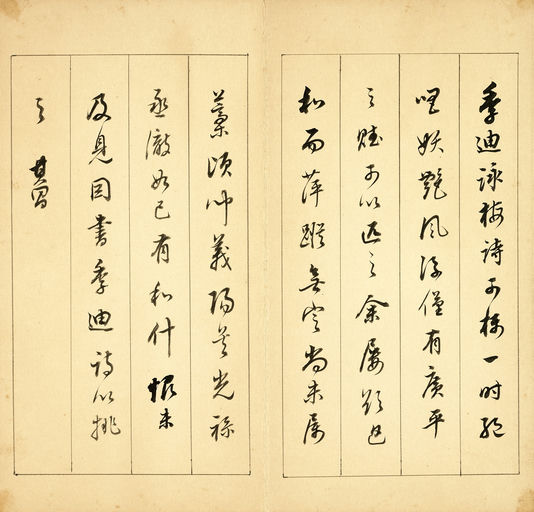 季迪詠梅詩可稱一時絕
唱妖艷風流僅有廣平
之賦可以匹之余屢欲追
和而萍蹤無定尚未属
藁頃仲義陽羨光祿
丞澂如已有和什恨未
及見因書季迪詩以挑
之 其昌